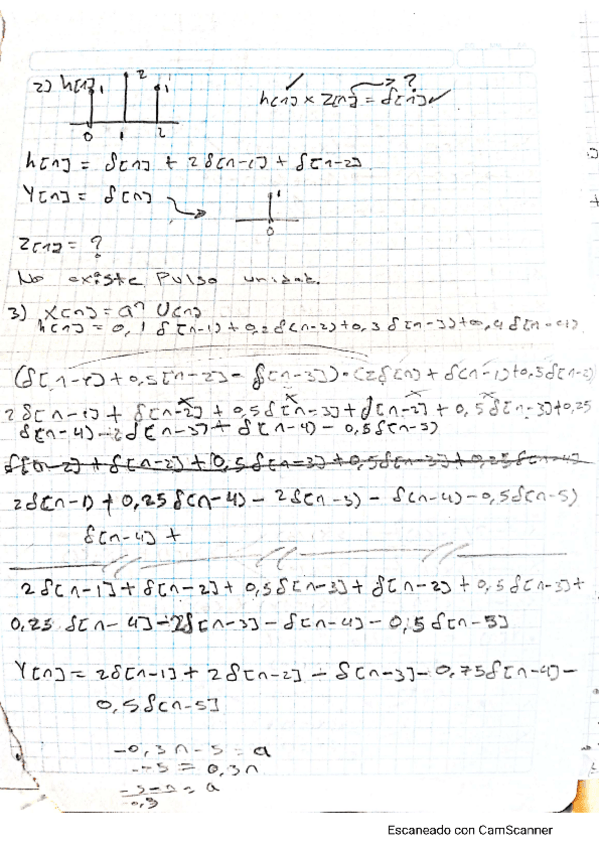 2) h[n] 1 2 1
0 1 2
h[n] × z[n] = δ[n] ?
h[n] = δ[n] + 2δ[n-1] + δ[n-2]
Y[n] = δ[n] 1
0
z[n] = ?
No existe Pulso unidad.
3) x[n] = aⁿ U[n]
h[n] = 0,1 δ[n-1] + 0,2 δ[n-2] + 0,3 δ[n-3] + 0,4 δ[n-4]
(δ[n-1] + 0,5[n-2] - δ[n-3]) · (2δ[n] + δ[n-1] + 0,5δ[n-2]
2δ[n-1] + δ[n-2] + 0,5δ[n-3] + δ[n-2] + 0,5δ[n-3] + 0,25
δ[n-4] - 2δ[n-3] + δ[n-4] - 0,5δ[n-5]
δ[n-2] + δ[n-2] + 0,5δ[n-3] + 0,5δ[n-3] + 0,25δ[n-4]
2δ[n-1) + 0,25δ[n-4) - 2δ[n-3) - δ[n-4) - 0,5δ[n-5)
δ[n-4] +
2δ[n-1] + δ[n-2] + 0,5δ[n-3] + δ[n-2] + 0,5δ[n-3] +
0,25 δ[n-4] - 2δ[n-3] - δ[n-4] - 0,5δ[n-5]
Y[n] = 2δ[n-1] + 2δ[n-2] - δ[n-3] - 0,75δ[n-4] -
0,5δ[n-5]
-0,3n-5 = a
--5 = 0,3n
= a
Escaneado con CamScanner